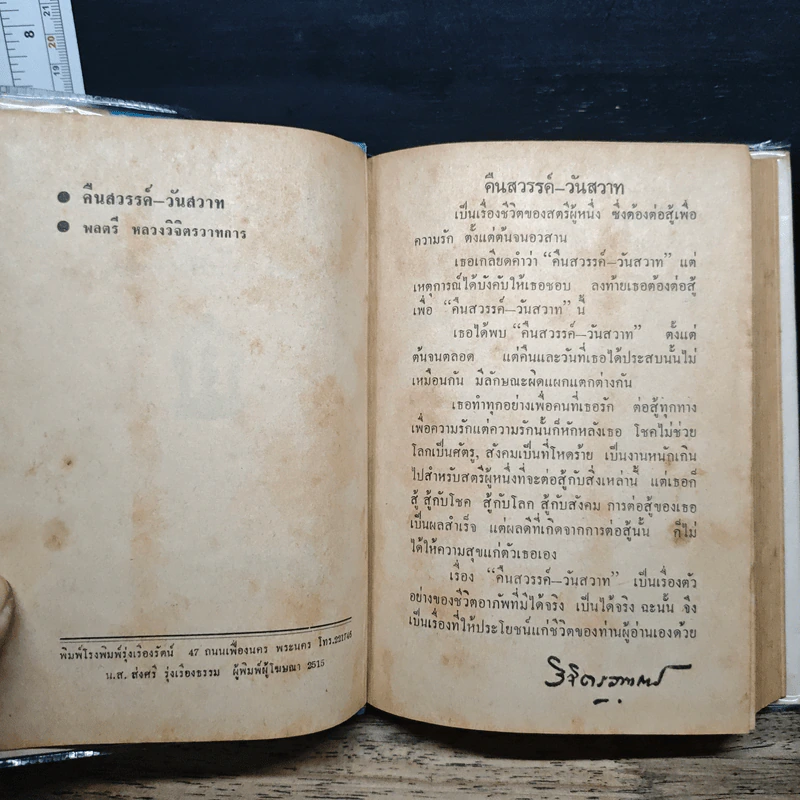 8
21
20
19
● คืนสวรรค์–วันสวาท
● พลตรี หลวงวิจิตรวาทการ
พิมพ์โรงพิมพ์รุ่งเรืองรัตน์ 47 ถนนเฟื่องนคร พระนคร โทร.221746
น.ส. ส่งศรี รุ่งเรืองธรรม ผู้พิมพ์ผู้โฆษณา 2515
คืนสวรรค์–วันสวาท
เป็นเรื่องชีวิตของสตรีผู้หนึ่ง ซึ่งต้องต่อสู้เพื่อ
ความรัก ตั้งแต่ต้นจนอวสาน
เธอเกลียดคำว่า “คืนสวรรค์–วันสวาท” แต่
เหตุการณ์ได้บังคับให้เธอชอบ ลงท้ายเธอต้องต่อสู้
เพื่อ “คืนสวรรค์–วันสวาท” นี้
เธอได้พบ “คืนสวรรค์–วันสวาท” ตั้งแต่
ต้นจนตลอด แต่คืนและวันที่เธอได้ประสบนั้นไม่
เหมือนกัน มีลักษณะผิดแผกแตกต่างกัน
เธอทำทุกอย่างเพื่อคนที่เธอรัก ต่อสู้ทุกทาง
เพื่อความรักแต่ความรักนั้นก็หักหลังเธอ โชคไม่ช่วย
โลกเป็นศัตรู, สังคมเป็นที่โหดร้าย เป็นงานหนักเกิน
ไปสำหรับสตรีผู้หนึ่งที่จะต่อสู้กับสิ่งเหล่านี้ แต่เธอก็
สู้ สู้กับโชค สู้กับโลก สู้กับสังคม การต่อสู้ของเธอ
เป็นผลสำเร็จ แต่ผลดีที่เกิดจากการต่อสู้นั้น ก็ไม่
ได้ให้ความสุขแก่ตัวเธอเอง
เรื่อง “คืนสวรรค์–วันสวาท” เป็นเรื่องตัว
อย่างของชีวิตอาภัพที่มีได้จริง เป็นได้จริง ฉะนั้น จึง
เป็นเรื่องที่ให้ประโยชน์แก่ชีวิตของท่านผู้อ่านเองด้วย
วิจิตรวาทการ